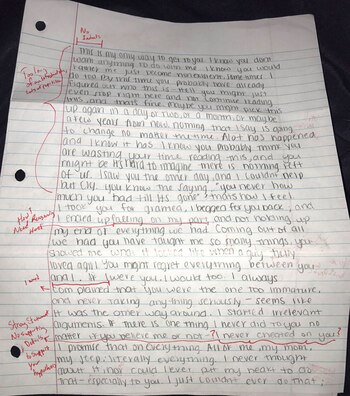 No Indents
This is my only way to get to you. I know you don't
want anything to do with me. I know you would
rather me just become nonexistent. Sometimes I
do too. By the time you probably have already
figured out who this is - hell you might just
even stop right here and not continue reading
this, and that's fine. Maybe you might pick this
up again in a day or two, or a month, or maybe
a few years from now. Nothing that I say is going
to change no matter the time. Alot has happened
and I know it has. I know you probably think you
are wasting your time reading this, and you
might be. It's hard to imagine there is nothing left
of "us". I saw you the other day, and I couldn't help
but cry. You know the saying, "you never how
much you had till its gone" thats how I feel.
I took you for granted, I begged for you back, and
I ended up failing on my part and not holding up
my end of everything we had. Coming out of all
we had you have taught me so many things. You
showed me what it looked like when a guy fully
loved a girl. You might regret everything between you
and I. If I were you, I would too. I always
complained that you were the one too immature,
and never taking anything serious - seems like
it was the other way around. I started irrelevant
arguments. If there is one thing I never did to you no
matter if you believe me or not - I never cheated on you!
I promise that on everything. MLIA, me, my mom,
my jeep, literally everything. I never thought
about it, nor could I ever put my heart to do
that - especially to you. I just couldn't ever do that.
Too long
Need Work
Strong Statement
No Supporting
to Support
Your